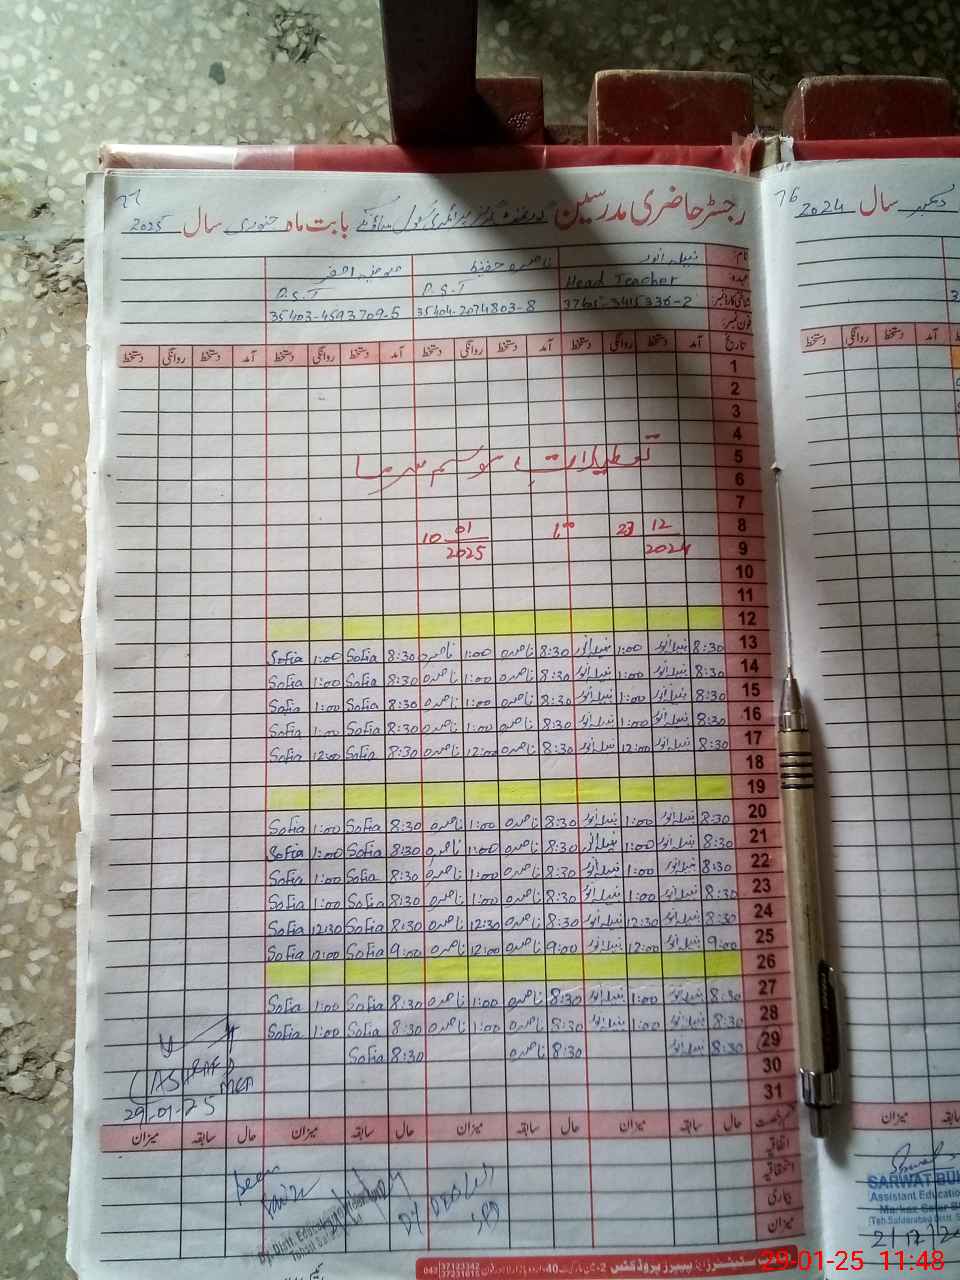 رجسٹر حاضری مدرسین گورنمنٹ گرلز پرائمری سکول بابت ماہ جنوری سال 2025
نام: نبیلہ انور ناصرہ حفیظ
عہدہ: Head Teacher P.S.T P.S.T
شناختی کارڈ نمبر: 35404-2074803-8 35403-4593709-5
فون نمبر:
تاریخ آمد دستخط روانگی دستخط آمد دستخط روانگی دستخط آمد دستخط روانگی دستخط آمد دستخط روانگی دستخط
1
2
3
4
5 تعطیلات موسم سرما
6
7
8
9 23 12/2024 تا 10 01/2025
10
11
12
13 8:30 نبیلہ انور 1:00 نبیلہ انور 8:30 ناصرہ 1:00 ناصرہ 8:30 Sofia 1:00 Sofia
14 8:30 نبیلہ انور 1:00 نبیلہ انور 8:30 ناصرہ 1:00 ناصرہ 8:30 Sofia 1:00 Sofia
15 8:30 نبیلہ انور 1:00 نبیلہ انور 8:30 ناصرہ 1:00 ناصرہ 8:30 Sofia 1:00 Sofia
16 8:30 نبیلہ انور 1:00 نبیلہ انور 8:30 ناصرہ 1:00 ناصرہ 8:30 Sofia 1:00 Sofia
17 8:30 نبیلہ انور 12:00 نبیلہ انور 8:30 ناصرہ 12:00 ناصرہ 8:30 Sofia 12:00 Sofia
18
19
20 8:30 نبیلہ انور 1:00 نبیلہ انور 8:30 ناصرہ 1:00 ناصرہ 8:30 Sofia 1:00 Sofia
21 8:30 نبیلہ انور 1:00 نبیلہ انور 8:30 ناصرہ 1:00 ناصرہ 8:30 Sofia 1:00 Sofia
22 8:30 نبیلہ انور 1:00 نبیلہ انور 8:30 ناصرہ 1:00 ناصرہ 8:30 Sofia 1:00 Sofia
23 8:30 نبیلہ انور 1:00 نبیلہ انور 8:30 ناصرہ 1:00 ناصرہ 8:30 Sofia 1:00 Sofia
24 8:30 نبیلہ انور 12:30 نبیلہ انور 8:30 ناصرہ 12:30 ناصرہ 8:30 Sofia 12:30 Sofia
25 9:00 نبیلہ انور 12:00 نبیلہ انور 9:00 ناصرہ 12:00 ناصرہ 9:00 Sofia 12:00 Sofia
26
27 8:30 نبیلہ انور 1:00 نبیلہ انور 8:30 ناصرہ 1:00 ناصرہ 8:30 Sofia 1:00 Sofia
28 8:30 نبیلہ انور 1:00 نبیلہ انور 8:30 ناصرہ 1:00 ناصرہ 8:30 Sofia 1:00 Sofia
29 8:30 نبیلہ انور 8:30 ناصرہ 8:30 Sofia
30
31
29-01-25
حال سابقہ میزان حال سابقہ میزان حال سابقہ میزان حال سابقہ میزان
اتفاقیہ
بیماری
میزان
Seen
Dy. Distt. Education
042 37123342 37231015
76
سال 2024 دسمبر
روانگی دستخط
میزان
SARWAT
Assistant Educatio
Markaz
29-01-25 11:48